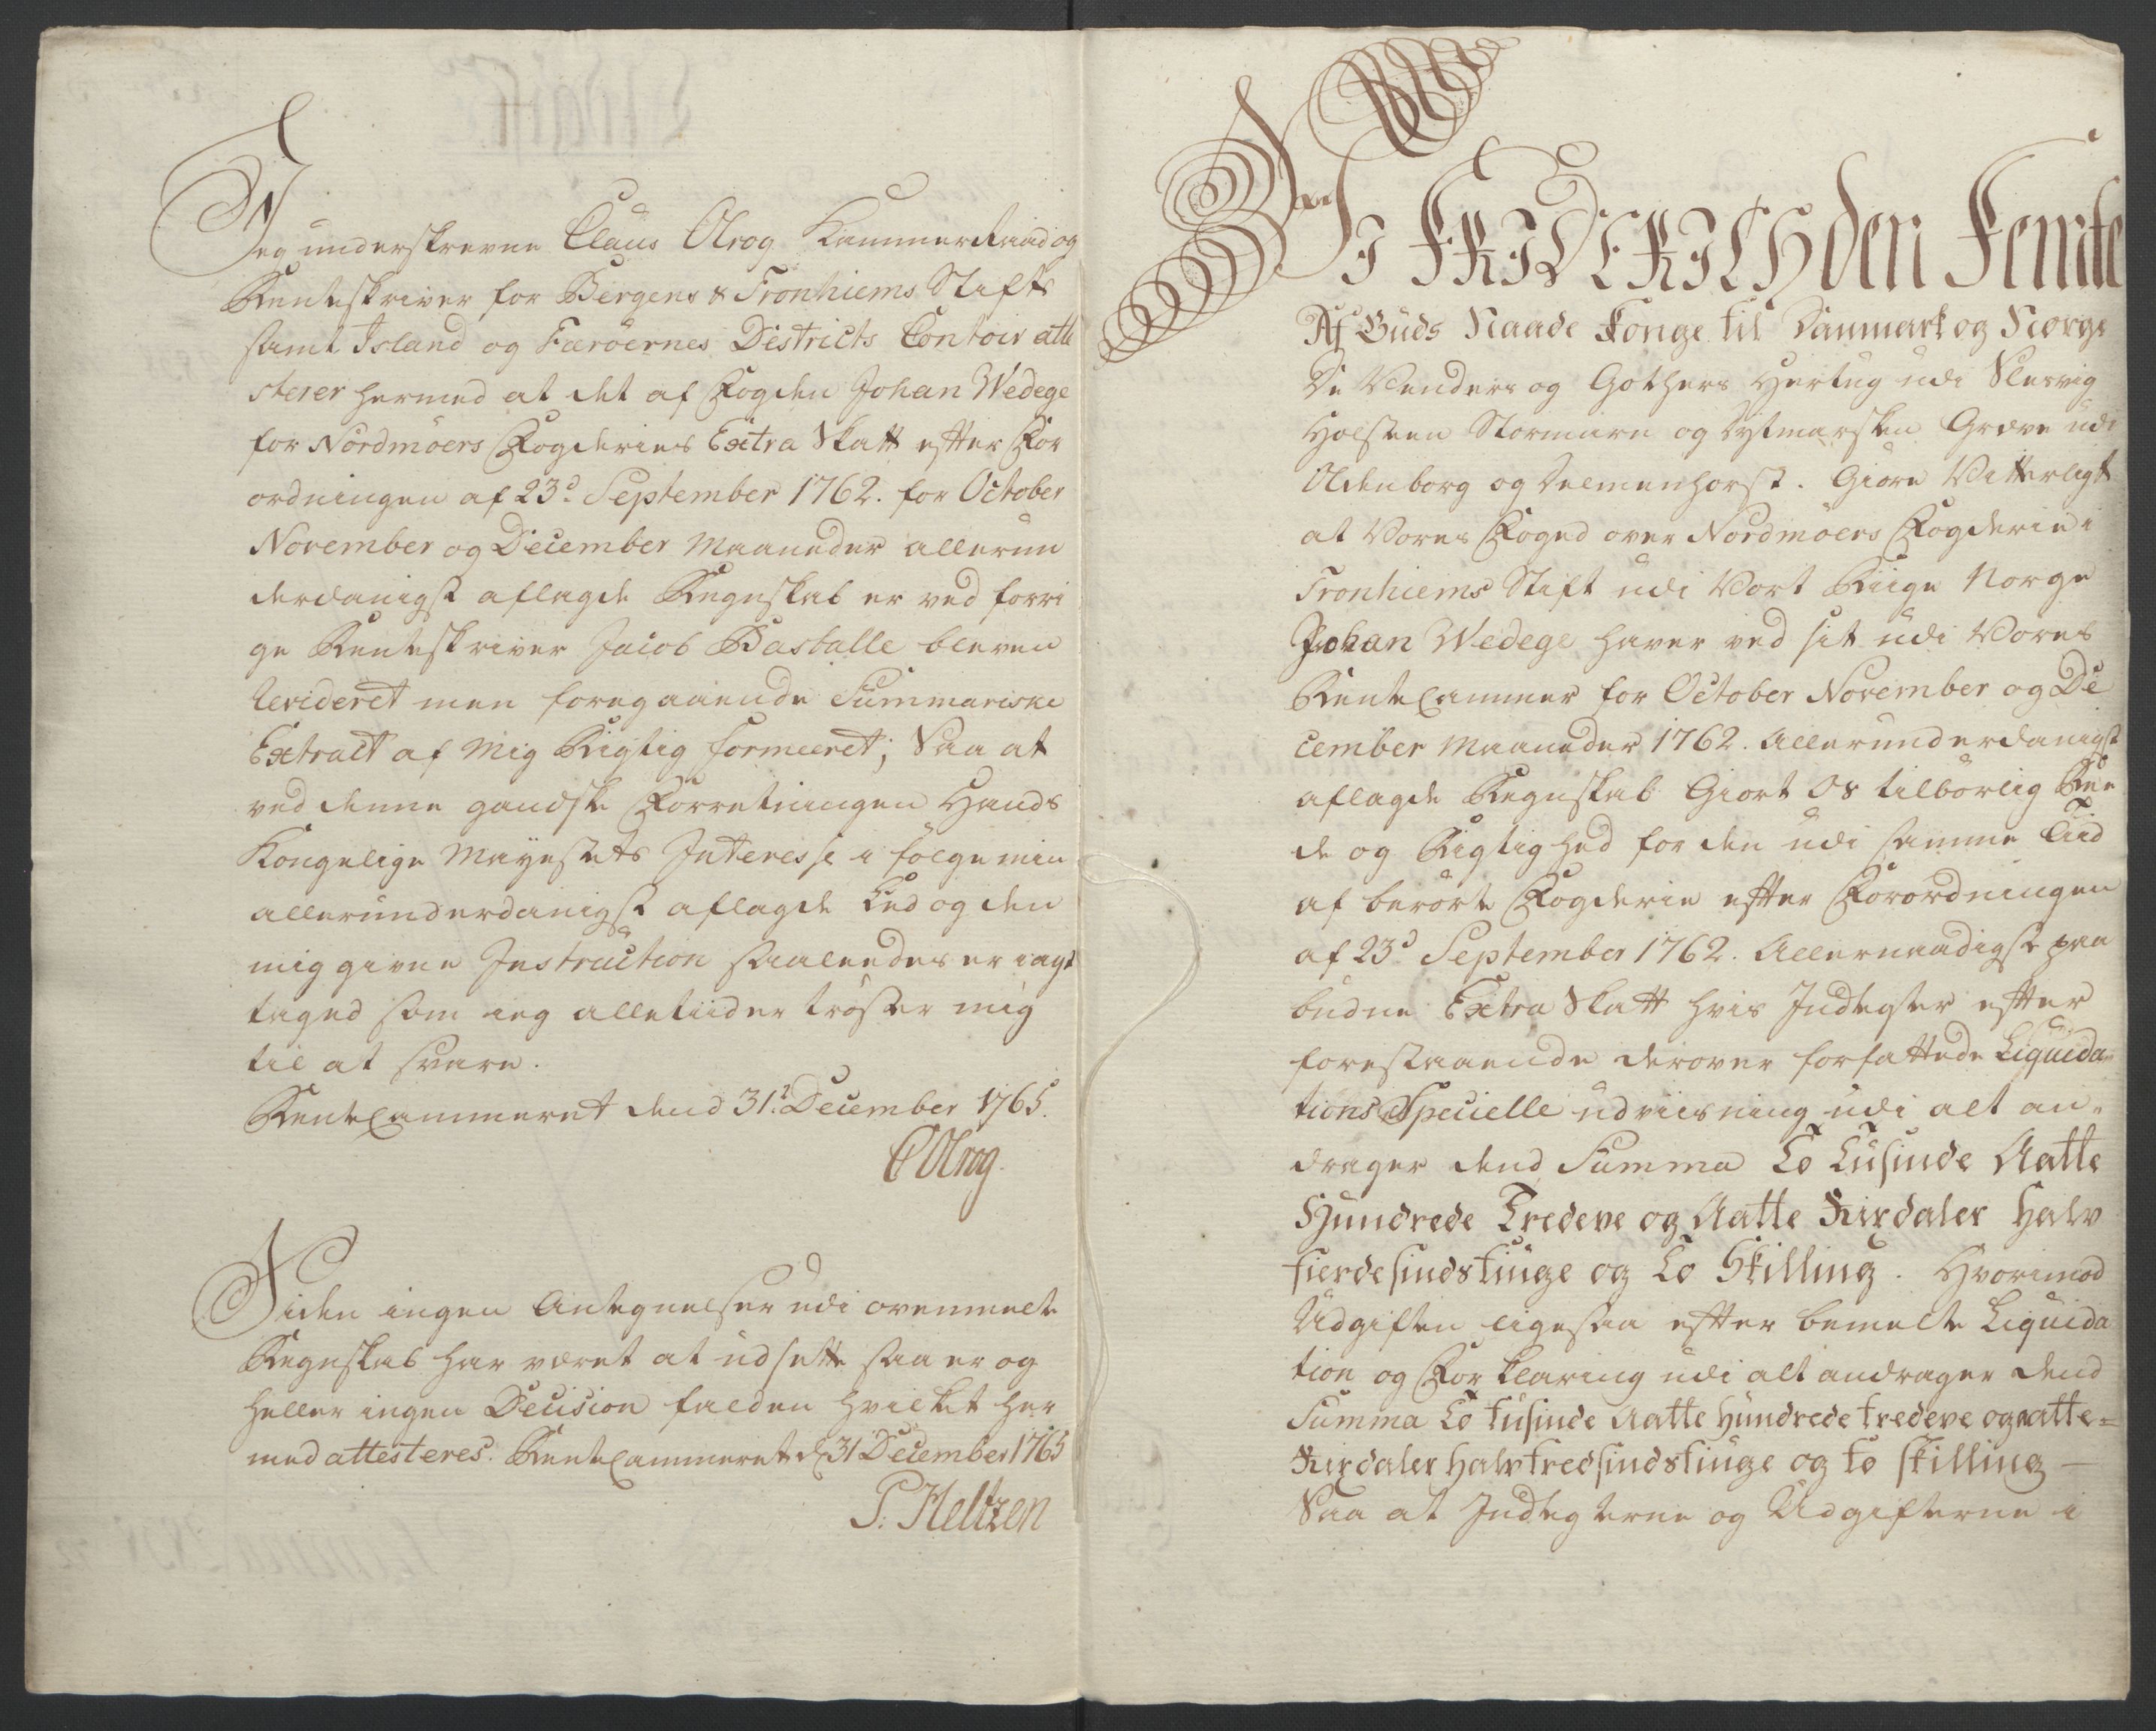 Jeg underskrevne Claus Olrog Kammerraad og
Renteskriver for Bergens & Tronhiems Stifts
samt Island og Færöernes Districts Contoir atte
sterer hermed at det af Fogden Johan Wedege
for Nordmöers Fogderies Extra Skatt efter For
ordningen af 23d September 1762. for October
November og December Maaneder allerun
derdanigst aflagde Regnskab er ved forri
ge Renteskriver Jacob Basballe bleven
revideret men foregaaende Summariske
Extract af Mig Rigtig formeeret; Saa at
ved denne gandske Forretningen Hands
Kongelige Mayestets Interesse i fölge min
allerunderdanigst aflagde Eed og den
mig givne Instruction saaleedes er iagt
taged som ieg alletiider tröster mig
til at svare.
RenteCammeret dend 31t December 1765.
COlrog.
Siden ingen Antegnelser udi ovenmelte
Regnskab har været at udsette saa er og
heller ingen Decision falden hvilket her
med attesteres. RenteCammeret d 31 December 1765
P. Heltzen
VI FRIDERICH den Femte
Af Guds Naade Konge til Danmark og Norge
De Venders og Gothers Hertug udi Slesvig
Holsteen Stormarn og Dytmarsken Greve udi
Oldenborg og Delmenhorst. Giøre Vitterligt
at Vores Foged over Nordmöers Fogderie i
Tronhiems Stift udi Vort Riige Norge
Johan Wedege haver ved sit udi Vores
RenteCammer for October November og De
cember Maaneder 1762. Allerunderdanigst
aflagde Regnskab Giort Os tilbörlig Ree
de og Rigtighed for den udi samme Tiid
af berörte Fogderie efter Forordningen
af 23d September 1762. Allernaadigst paa
budne Extra Skatt hvis Indtegter efter
forestaaende derover forfattede Liquida-
tions Specielle udviisning udi alt an-
drager dend Summa To Tusinde Aatte
Hundrede Tredeve og Aatte Rixdaler Halv
fierdesindstiuge og To Skilling. Hvorimod
Udgiften ligesaa efter bemelte Liquida
tion og Forklaring udi alt andrager dend
Summa To tusinde Aatte hundrede tredeve og aatte=
Rixdaler halvfredsindstiuge og to skilling —
Saa at Indtegterne og Udgifterne i